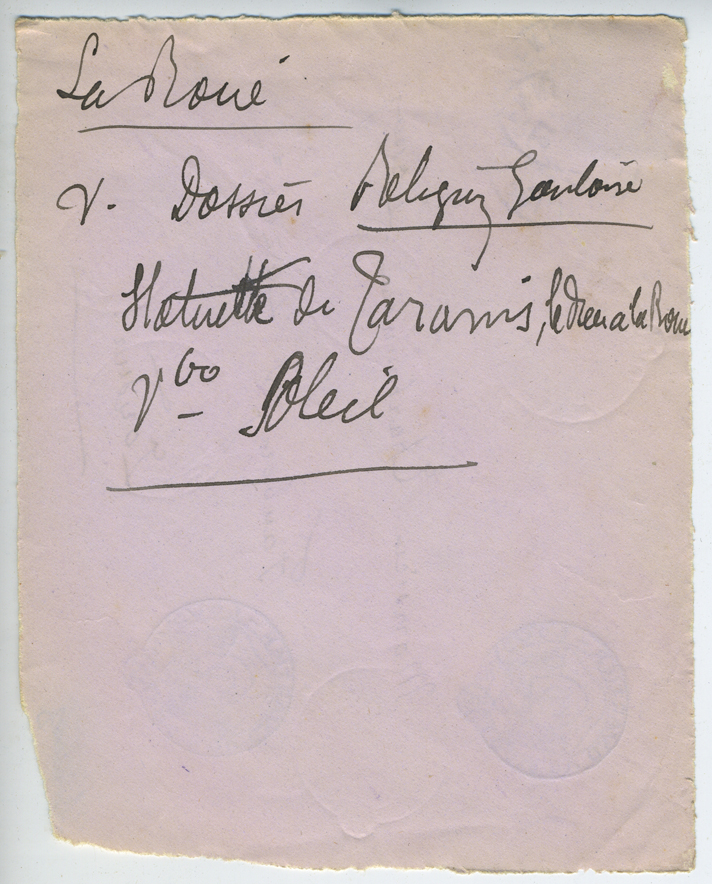 La Roue
V. Dossier Religion Gauloise
Statuette de Taranis, le dieu à la Roue
Vbo Soleil